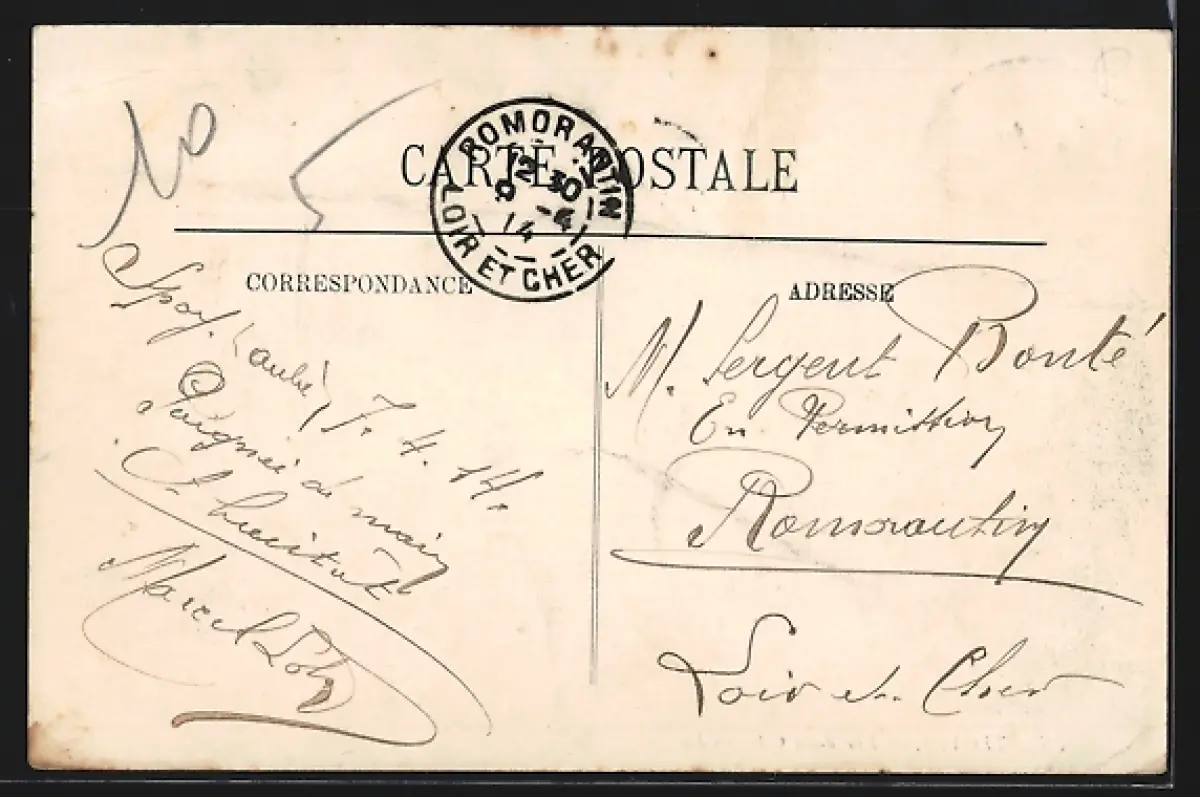 CARTE POSTALE
ROMORANTIN
12 30
9 -4
14
LOIR ET CHER
CORRESPONDANCE
ADRESSE
Spoy. (aube) 7. 4. 14.
Poignée de main
Marcel
M. Sergent Bonté
En Permission
Romorantin
Loir et Cher